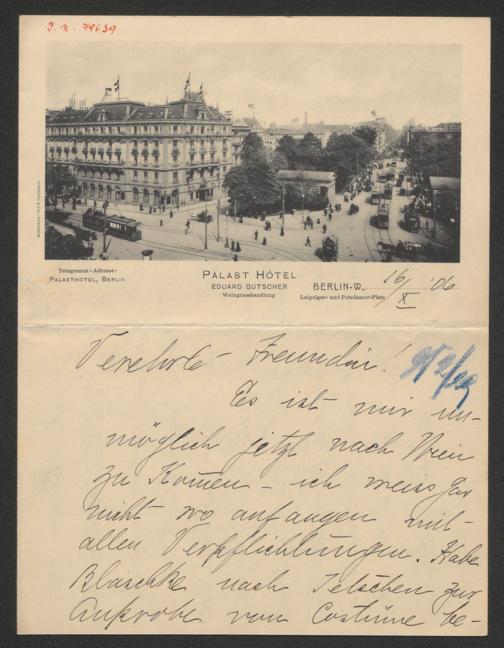 J. n. 79639
Telegramm-Adresse:
PALASTHOTEL, BERLIN
PALAST HÔTEL
EDUARD GUTSCHER
Weingrosshandlung
BERLIN-W.,
Leipziger- und Potsdamer-Platz
16/X '06
Verehrte Freundin!
Es ist mir un-
möglich jetzt nach Wien
zu Komen - ich weiss gar
nicht wo anfangen mit
allen Verpflichtungen. Habe
Blaschke nach Tetschen zur
Anprobe von Costüme be-